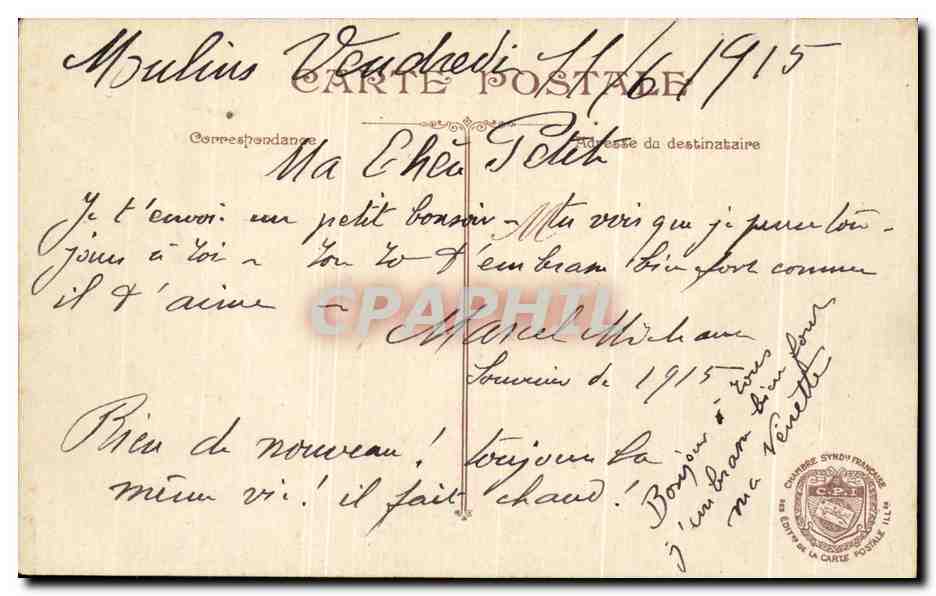 Moulins Vendredi 11/6/1915
CARTE POSTALE
Correspondance
Adresse du destinataire
Ma Chèr Petit
Je t'envoi un petit bonsoir - tu vois que je pense tou-
jours à toi - ton to t'embrasse bien fort comme
il t'aime -
CPAPHIL
Marcel
Souvenir de 1915
Rien de nouveau! toujours la
même vie! il fait chaud!
Bonjour à tous
j'embrasse bien fort
ma Ninette
CHAMBRE SYNDle FRANÇAISE
C.P.I
DES ÉDITrs DE LA CARTE POSTALE ILLée